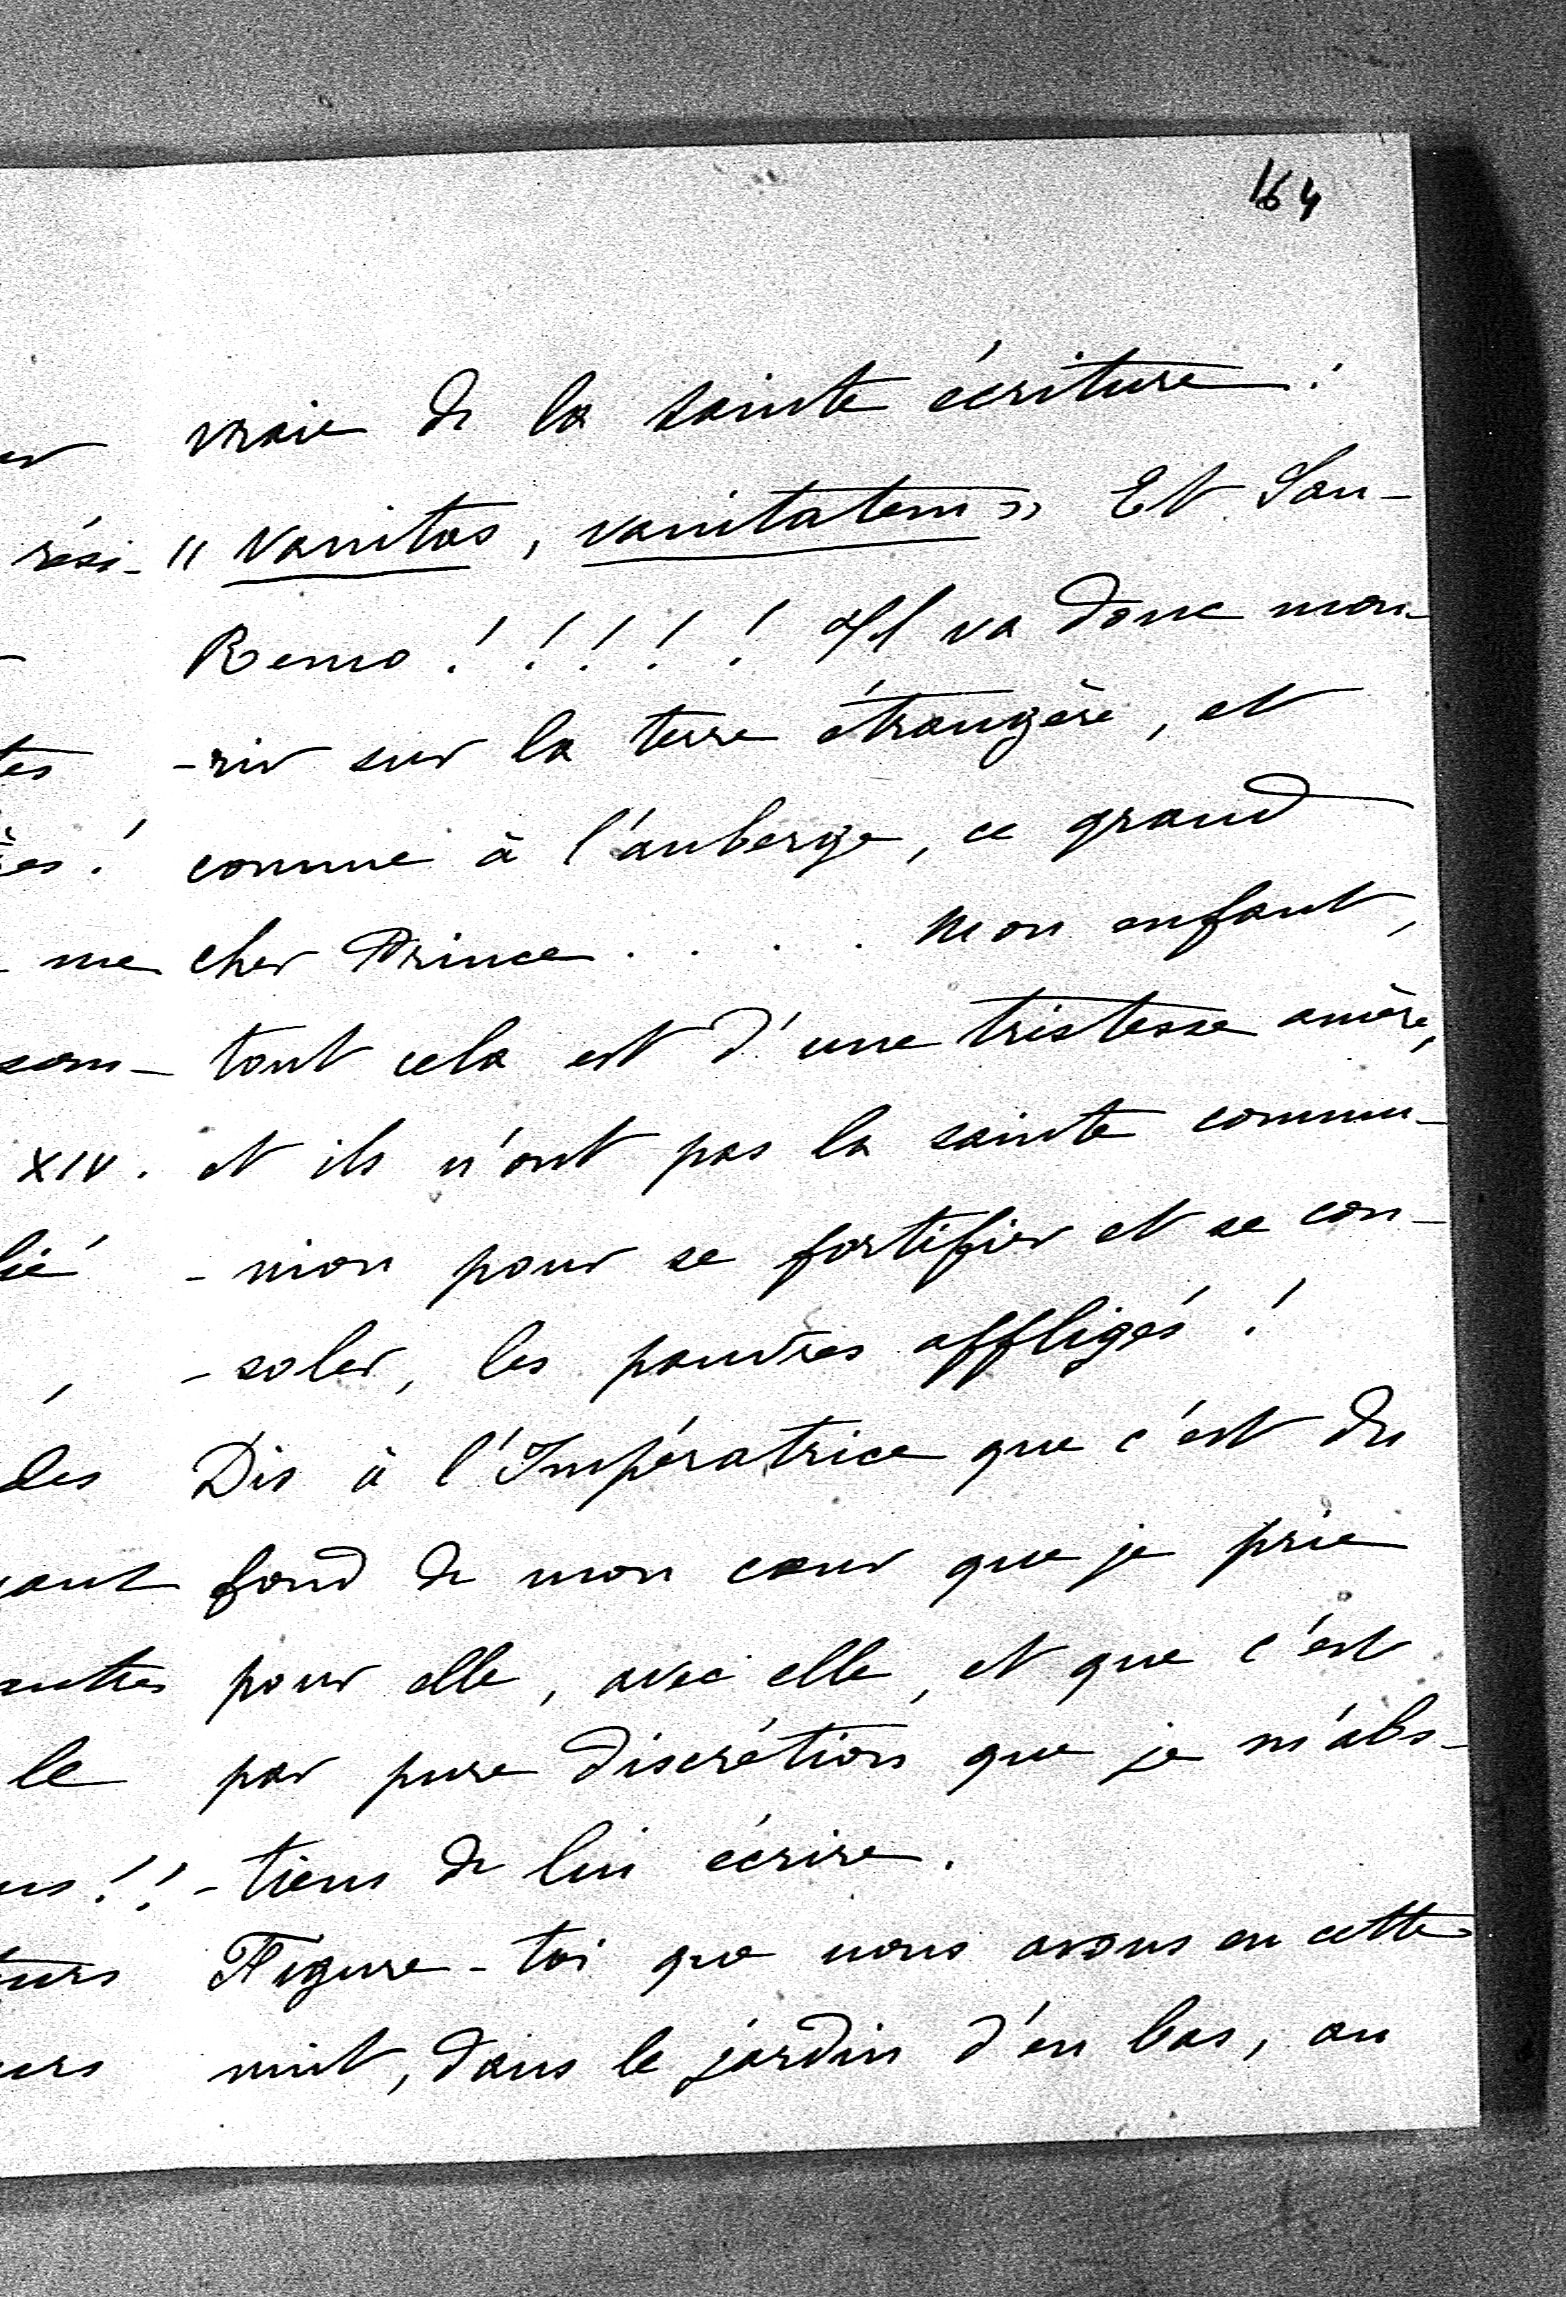 164
vraie de la sainte écriture :
" vanitas, vanitatem » Et San-
Remo ! ! ! ! ! Il va donc mou-
-rir sur la terre étrangère, et
comme à l'auberge, ce grand
cher Prince . . . . Mon enfant,
tout cela est d'une tristesse amère,
et ils n'ont pas la sainte commu-
-nion pour se fortifier et se con-
-soler, les pauvres affligés !
Dis à l'Impératrice que c'est du
fond de mon cœur que je prie
pour elle, avec elle, et que c'est
par pure discrétion que je m'abs-
-tiens de lui écrire.
Figure-toi que nous avons eu cette
nuit, dans le jardin d'en bas, au